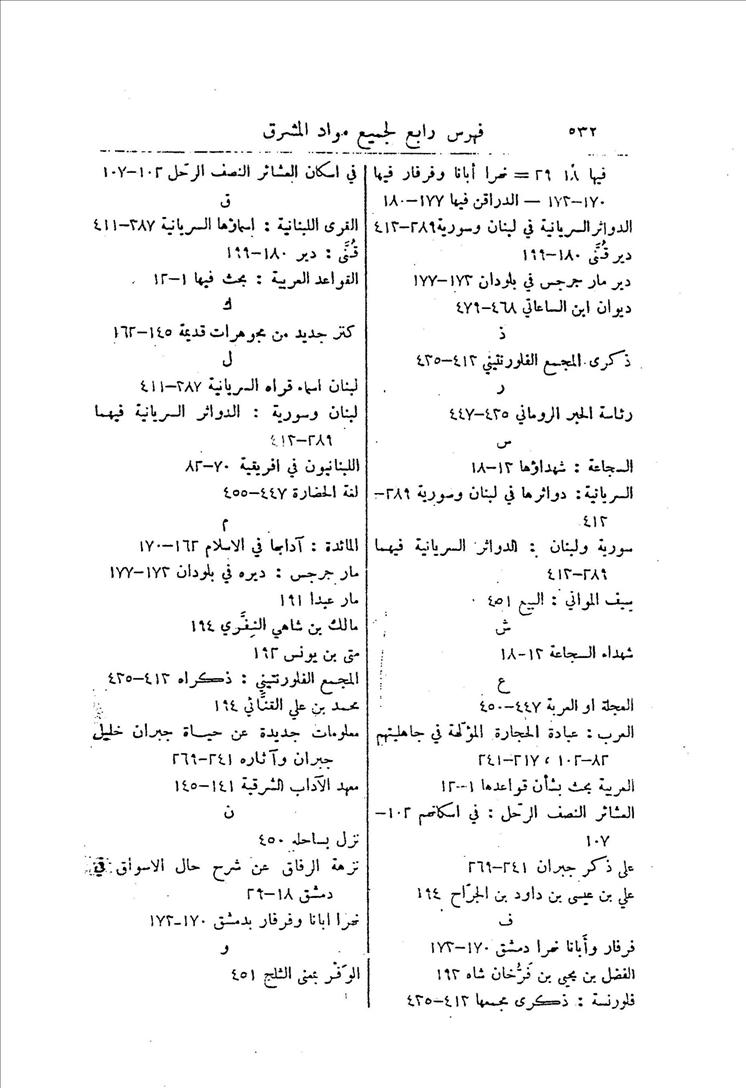 ٥٣٢ فهرس رابع لجميع مواد المشرق
فيها ١٨ ٢٩ = نهرا أبانا وفرفار فيها
١٧٠–١٧٢ — الدراقن فيها ١٧٧–١٨٠
الدوائر السريانية في لبنان وسورية ٢٨٩–٤١٢
دير قُنَّى ١٨٠–١٩٩
دير مار جرجس في بلودان ١٧٢–١٧٧
ديوان ابن الساعاتي ٤٦٨–٤٧٩
ذ
ذكرى المجمع الفلورنتيني ٤١٢–٤٢٥
ر
رئاسة الحبر الروماني ٤٢٥–٤٤٧
س
السجاعة : شهداؤها ١٢–١٨
السريانية : دوائرها في لبنان وسورية ٢٨٩–
٤١٢
سورية ولبنان : الدوائر السريانية فيهما
٢٨٩–٤١٢
سيف المواني : البيع ٤٥١
ش
شهداء السجاعة ١٢–١٨
ع
العجلة او العربة ٤٤٧–٤٥٠
العرب : عبادة الحجارة المؤلهة في جاهليتهم
٨٢–١٠٢ ، ٢١٧–٢٤١
العربية بحث بشأن قواعدها ١–١٢
العشائر النصف الرحل : في اسكانهم ١٠٢–
١٠٧
على ذكر جبران ٢٤١–٢٦٩
علي بن عيسى بن داود بن الجرّاح ١٩٤
ف
فرفار وأبانا نهرا دمشق ١٧٠–١٧٢
الفضل بن يحيى بن فرُّخان شاه ١٩٢
فلورنسة : ذكرى مجمعها ٤١٢–٤٢٥
في اسكان العشائر النصف الرحّل ١٠٢–١٠٧
ق
القرى اللبنانية : اسماؤها السريانية ٢٨٧–٤١١
قُنَّى : دير ١٨٠–١٩٩
القواعد العربية : بحث فيها ١–١٢
ك
كنز جديد من مجوهرات قديمة ١٤٥–١٦٢
ل
لبنان اسماء قراه السريانية ٢٨٧–٤١١
لبنان وسورية : الدوائر السريانية فيهما
٢٨٩–٤١٢
اللبنانيون في افريقية ٧٠–٨٢
لغة الحضارة ٤٤٧–٤٥٥
م
المائدة : آدابها في الاسلام ١٦٢–١٧٠
مار جرجس : ديره في بلودان ١٧٢–١٧٧
مار عبدا ١٩١
مالك بن شاهي النِفَّري ١٩٤
متى بن يونس ١٩٢
المجمع الفلورنتيني : ذكراه ٤١٢–٤٢٥
محمد بن علي القنَّائي ١٩٤
معلومات جديدة عن حياة جبران خليل
جبران وآثاره ٢٤١–٢٦٩
معهد الآداب الشرقية ١٤١–١٤٥
ن
نزل بساحله ٤٥٠
نزهة الرفاق عن شرح حال الاسواق في
دمشق ١٨–٢٩
نهرا ابانا وفرفار بدمشق ١٧٠–١٧٢
و
الوَفْر بمعنى الثلج ٤٥١